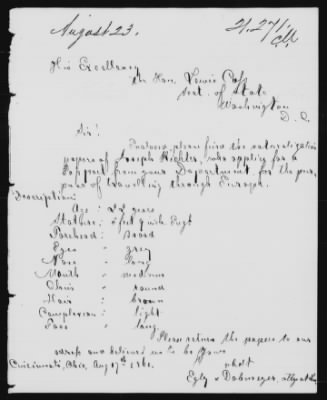 August 23.
21.271.
His Excellency
the Hon. Lewis Cass
Sect. of State
Washington
D. C.
Sir!
Enclosed please find the naturalization
papers of Joseph, who applys for a
Passport from your Department, for the pur-
pose of travelling through Europe.
Description:
Age: years
Stature: 5 feet inch Engl
Forehead: broad
Eyes grey
Nose long
Mouth medium
Chin round
Hair brown
Complexion: light
Face long
Please return the papers to our
adress and believe us to be Yours
Cincinnati, Ohio, Aug 19th 1860.
Egly &